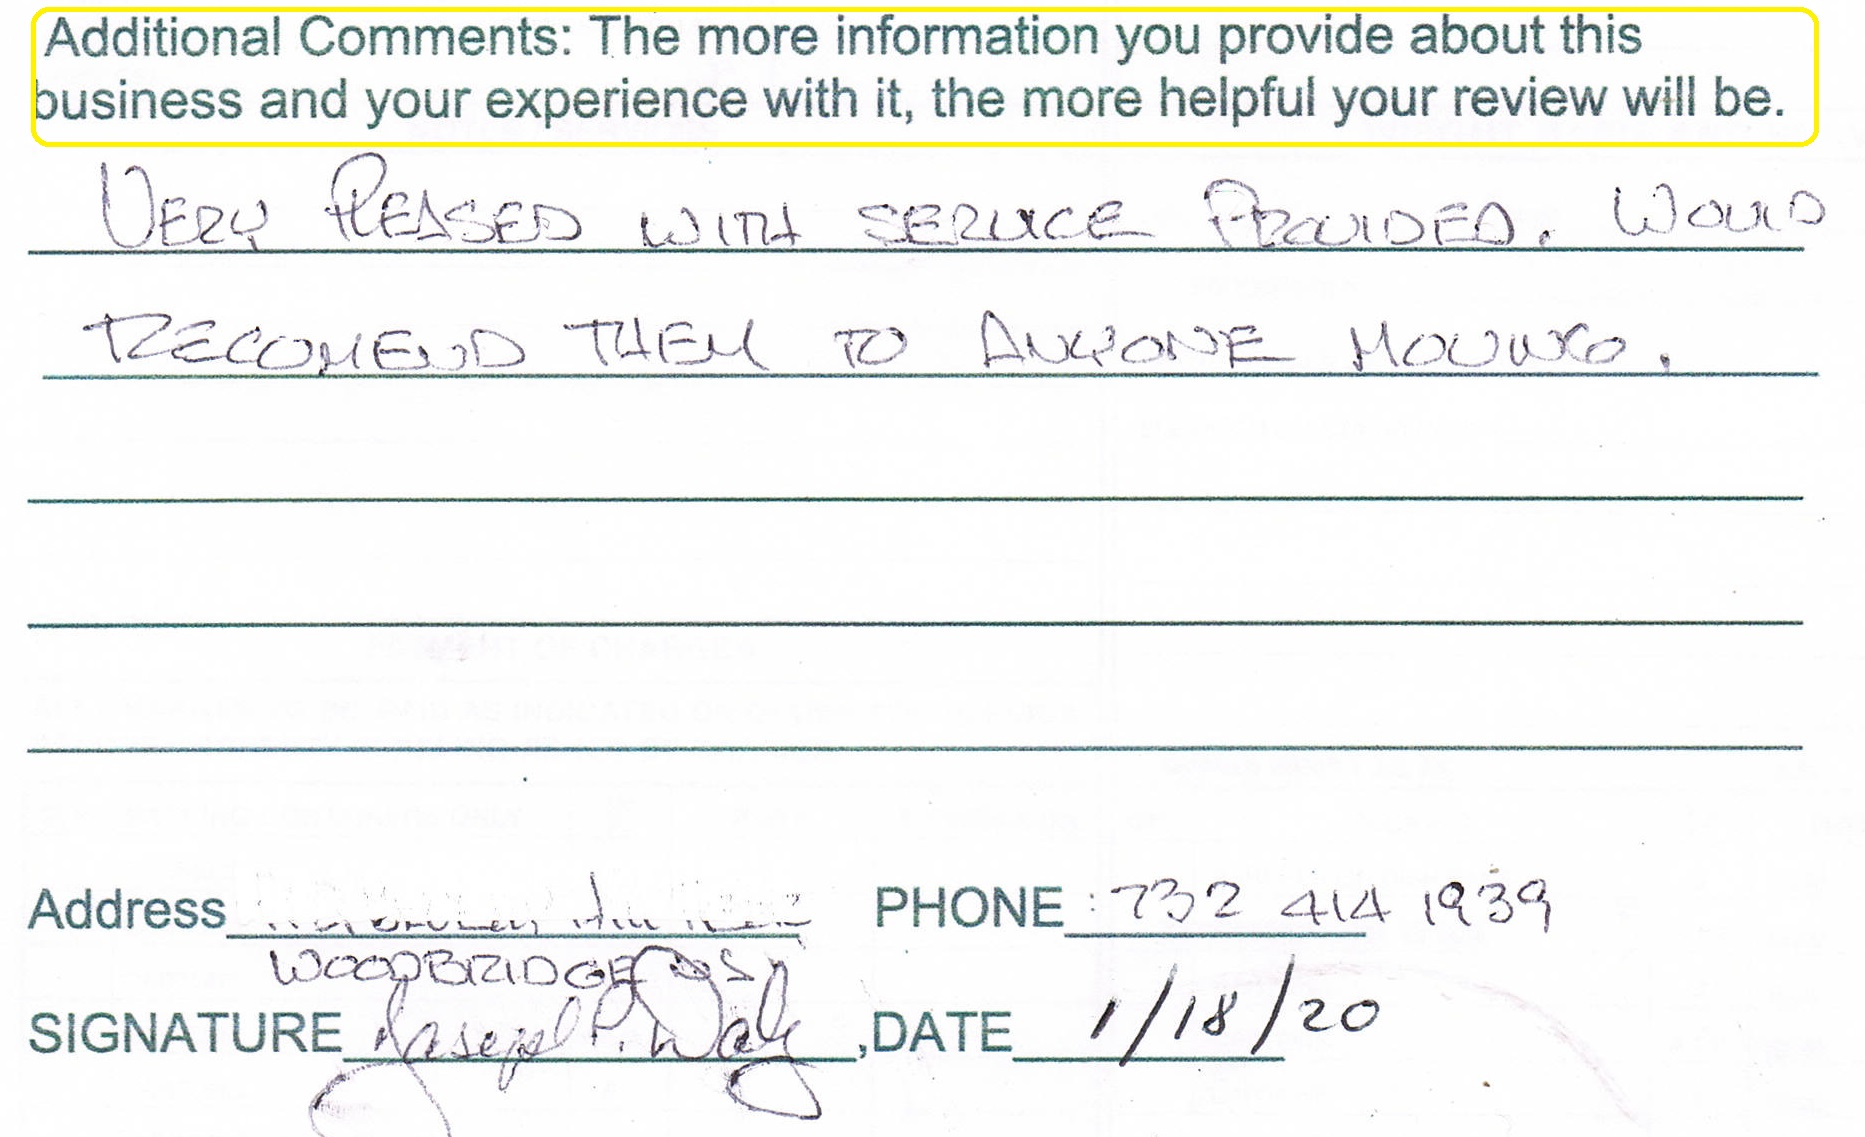 Additional Comments: The more information you provide about this
business and your experience with it, the more helpful your review will be.
VERY PLEASED WITH SERVICE PROVIDED. WOULD
RECOMEND THEM TO ANYONE MOVING.
Address PHONE: 732 414 1939
WOODBRIDGE NJ
SIGNATURE Joseph P. Daly, DATE 1/18/20